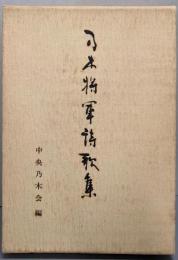 乃木将軍詩歌集
中央乃木会編